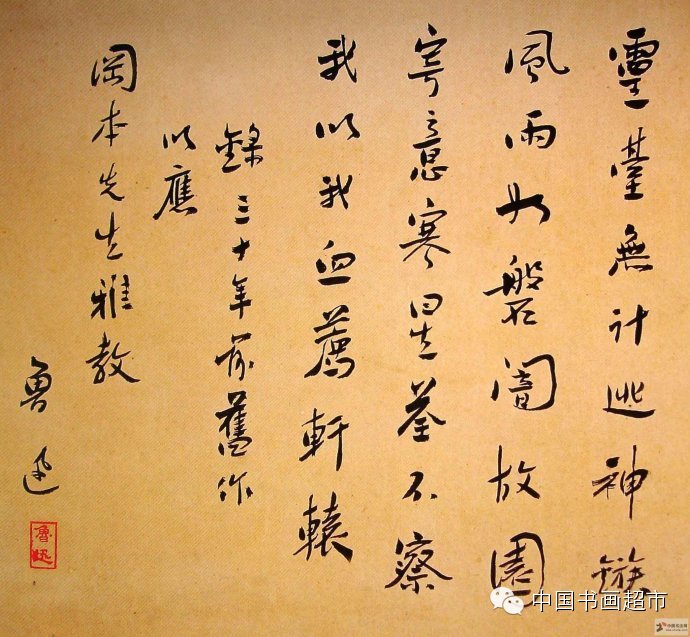 靈臺無計逃神鏃
風雨如磐闇故園
寄意寒星荃不察
我以我血薦軒轅
錄三十年前舊作
以應
岡本先生雅教
魯迅
魯迅
中国书画超市